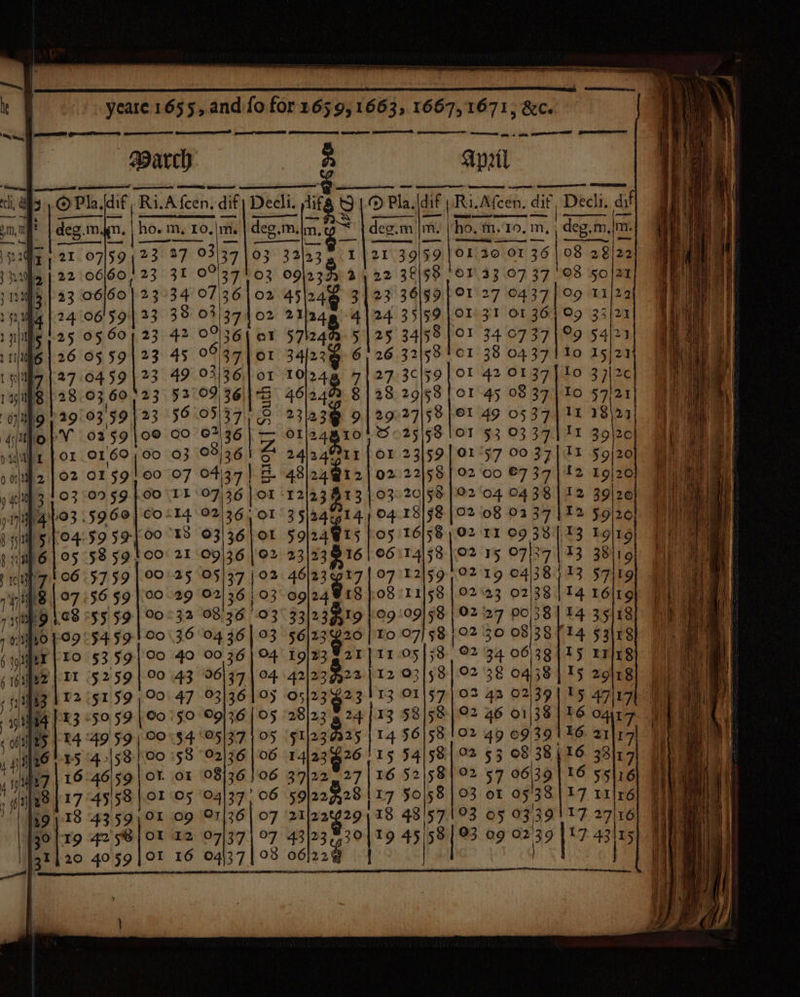 yeare 1655, and ſo for 1659, 1663, 1667, 1671, &c.
March April
☉ Pla. dif Ri. Aſcen. dif Decli. dif ☉ Pla. dif Ri. Aſcen. dif Decli. dif
deg. m. m. ho. m. 10. m. deg. m. m. deg. m m. ho. m. 10. m. deg. m. m.
21 07 59 23 27 03 37 03 32 23 1 21 39 59 01 20 01 36 08 28 22
22 06 60 23 31 00 37 03 09 23 2 22 38 58 01 23 07 37 08 50 21
3 23 06 60 23 34 07 36 02 45 24 3 23 36 59 01 27 04 37 09 11 22
4 24 06 59 23 38 03 37 02 21 24 4 24 35 59 01 31 01 36 09 33 21
25 05 60 23 42 00 36 01 57 24 5 25 34 58 01 34 07 37 09 54 21
6 26 05 59 23 45 06 37 01 34 23 6 26 32 58 01 38 04 37 10 15 21
7 27 04 59 23 49 03 36 01 10 24 7 27 30 59 01 42 01 37 10 37 20
8 28 03 60 23 52 09 36 South 46 24 8 28 29 58 01 45 08 37 10 57 21
9 29 03 59 23 56 05 37 23 23 9 29 27 58 01 49 05 37 11 18 21
♈ 02 59 00 00 02 36 01 24 10 ♉ 25 58 01 53 03 37 11 39 20
01 01 60 00 03 08 36 24 24 11 01 23 59 01 57 00 37 11 59 20
2 02 01 59 00 07 04 37 48 24 12 02 22 58 02 00 07 37 12 19 20
3 03 00 59 00 11 07 36 01 12 23 13 03 20 58 02 04 04 38 12 39 20
4 03 59 60 00 14 02 36 01 35 24 14 04 18 58 02 08 02 37 12 59 20
5 04 59 59 00 18 03 36 01 59 24 15 05 16 58 02 11 09 38 13 19 19
6 05 58 59 00 21 09 36 02 23 23 16 06 14 58 02 15 07 37 13 38 19
7 06 57 59 00 25 05 37 02 46 23 17 07 12 59 02 19 04 38 13 57 19
8 07 56 59 00 29 02 36 03 09 24 18 08 11 58 02 23 02 38 14 16 19
9 08 55 59 00 32 08 36 03 33 23 19 09 09 58 02 27 00 38 14 35 18
09 54 59 00 36 04 36 03 56 23 20 10 07 58 02 30 08 38 14 53 18
10 53 59 00 40 00 36 04 19 23 21 11 05 58 02 34 06 38 15 11 18
11 52 59 00 43 06 37 04 42 23 22 12 03 58 02 38 04 38 15 29 18
12 51 59 00 47 03 36 05 05 23 23 13 01 57 02 42 02 39 15 47 17
13 50 59 00 50 09 36 05 28 23 24 13 58 58 02 46 01 38 16 04 17
14 49 59 00 54 05 37 05 51 23 25 14 56 58 02 49 09 39 16 21 17
15 4 58 00 58 02 36 06 14 23 26 15 54 58 02 53 08 38 16 38 17
16 46 59 01 01 08 36 06 37 22 27 16 52 58 02 57 06 39 16 55 16
28 17 45 58 01 05 04 37 06 59 22 28 17 50 58 03 01 05 38 17 11 16
29 18 43 59 01 09 01 36 07 21 22 29 18 48 57 03 05 03 39 17 27 16
30 19 42 58 01 12 07 37 07 43 23 30 19 45 58 03 09 02 39 17 43 15
31 20 40 59 01 16 04 37 08 06 22